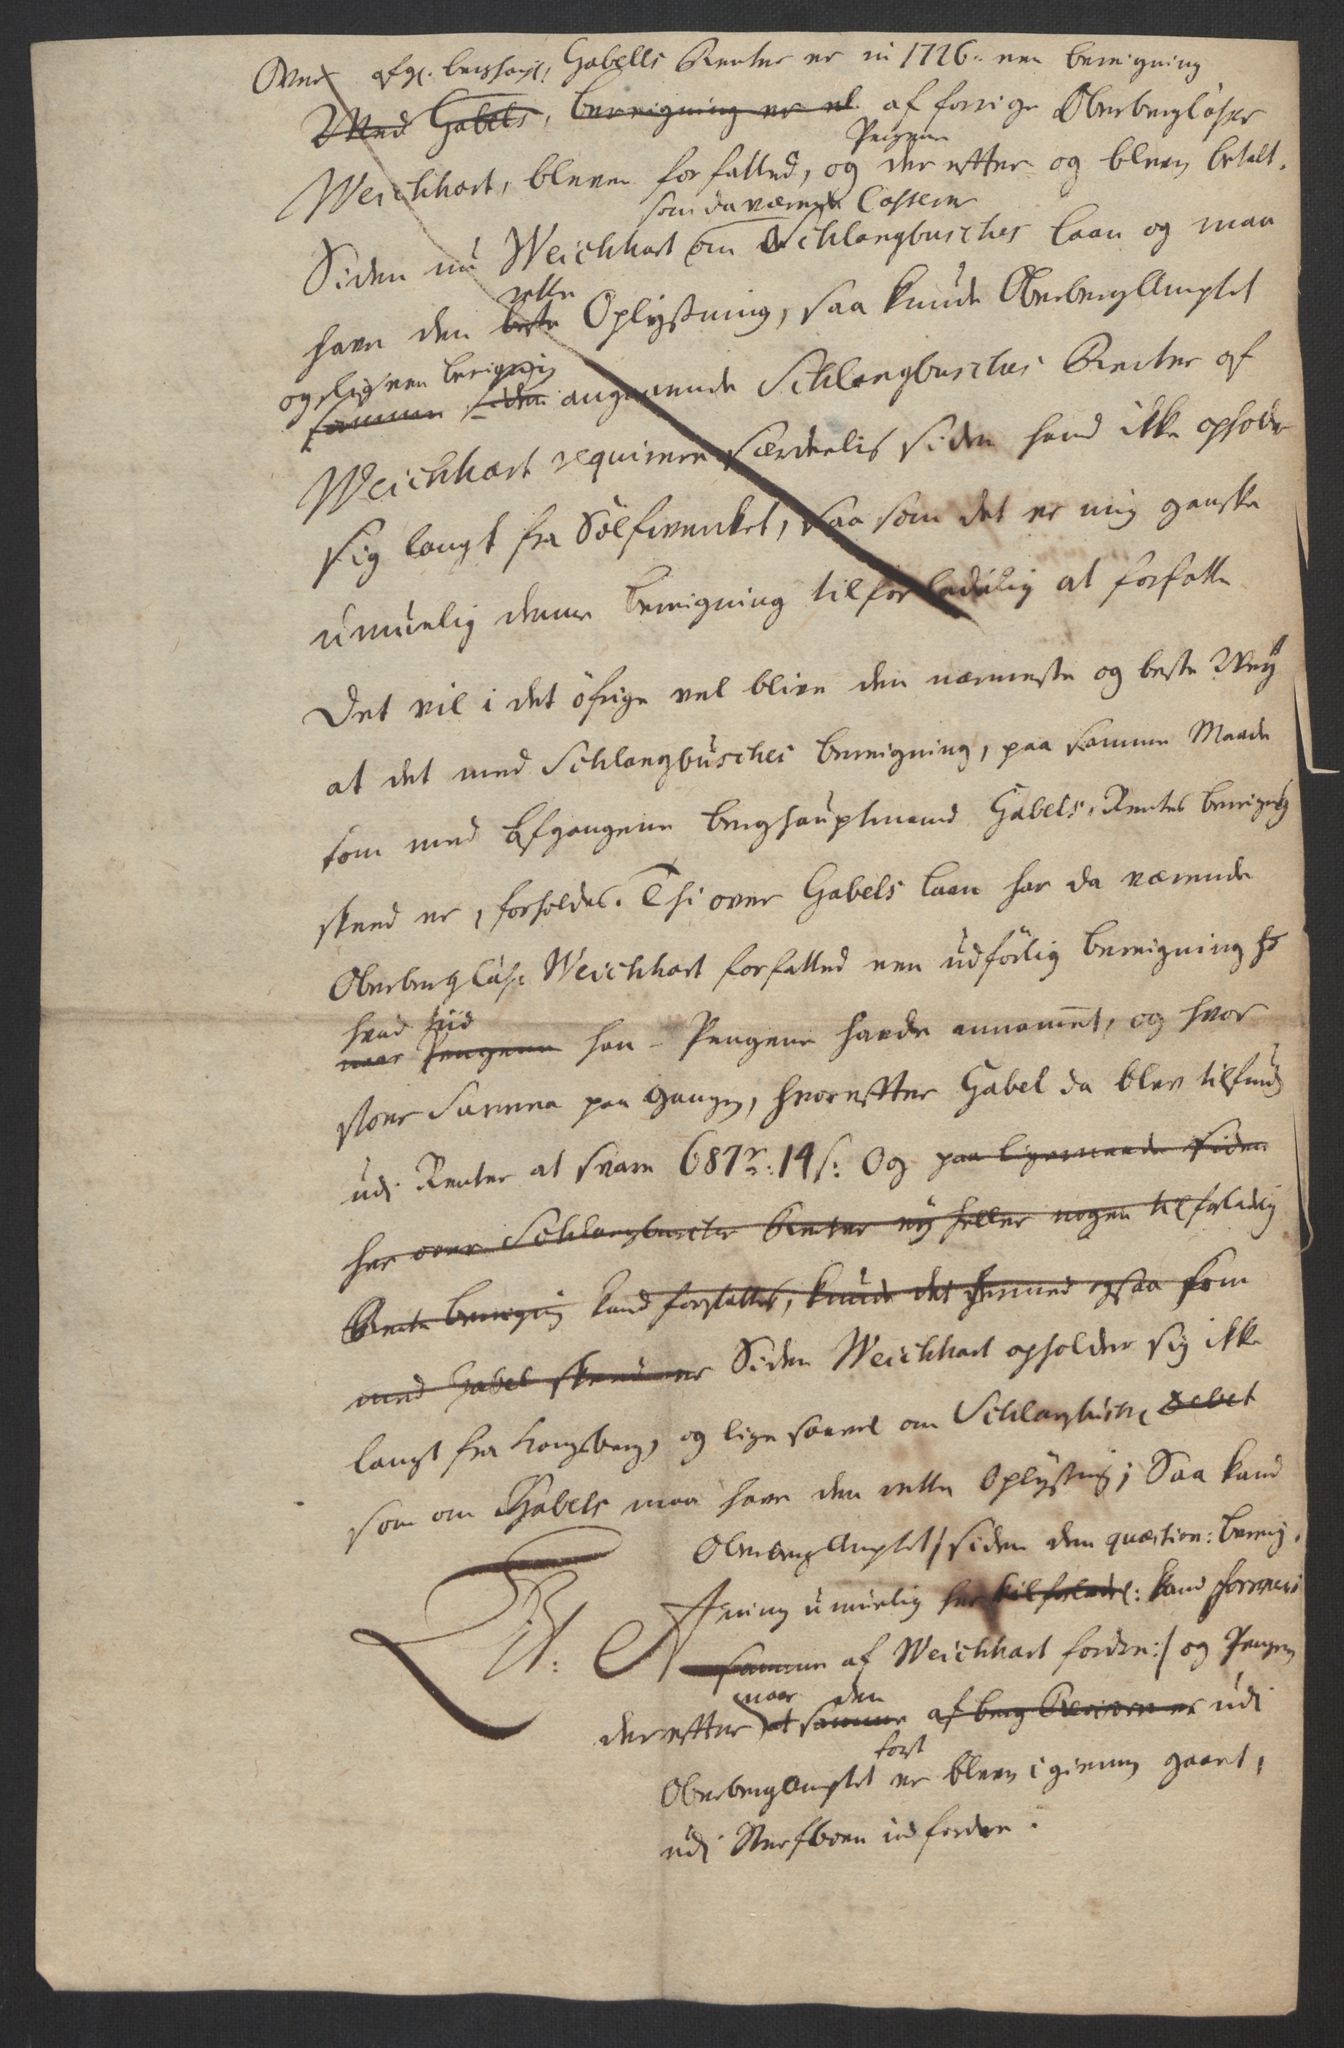 Over afg. berghaupt. Gabells Renter er in 1726. een beregning
Med Gabels, beregning er el. af forrige Oberbergcasser
Weichhart, bleven forfatted, og der effter og bleven betalt.
Pengene
som da værende Casserer
Siden nu Weichhart om Schlangbusches laan og maa
have den beste Oplysning, saa kunde OberbergAmptet
rette
ogsaa een beregning
samme angaaende Schlangbusches Renter af
Weichhart requirere særdeelis siden hand ikke opholde
sig langt fra Sölfverket, saa som det er mig ganske
umuelig denne beregning tilforladelig at forfatte
Det vil i det öfrige vel blive den nærmeste og beste Wey
at det med Schlangbusches beregning, paa samme Maade
som med Afgangene berghauptmand Gabels, Rentes beregning
skeed er, forholdes. Thi over Gabels laan har da værende
Oberberg Cass: Weichhart forfatted een udförlig beregning
hvad tid
naar Pengene han Pengene havde annammet, og hvor
stor Summa paa gangen, hvoreffter Gabel da blev tilfunden
udi Renter at svare 687 r: 14 s: Og paa ligemaade siden
her over Schlangbusches Renter ey heller nogen tilforladelig
Rente beregning kand forfattes, kunde det hermed ogsaa som
med Gabel skeed er Siden Weichhart opholder sig ikke
langt fra Kongsberg, og lige saavel om Schlangbusches debet
som om Gabels maa have den rette Oplysning; Saa kand
OberbergAmptet / siden den quæstion: bereg
ning umuelig her tilforladel: kand
samme af Weichhart fordre:/ og Pengene
naar den
der effter at samme af berg er udi
OberbergAmptet först er bleven igiennem gaaet,
udi Sterfboen indfordre.